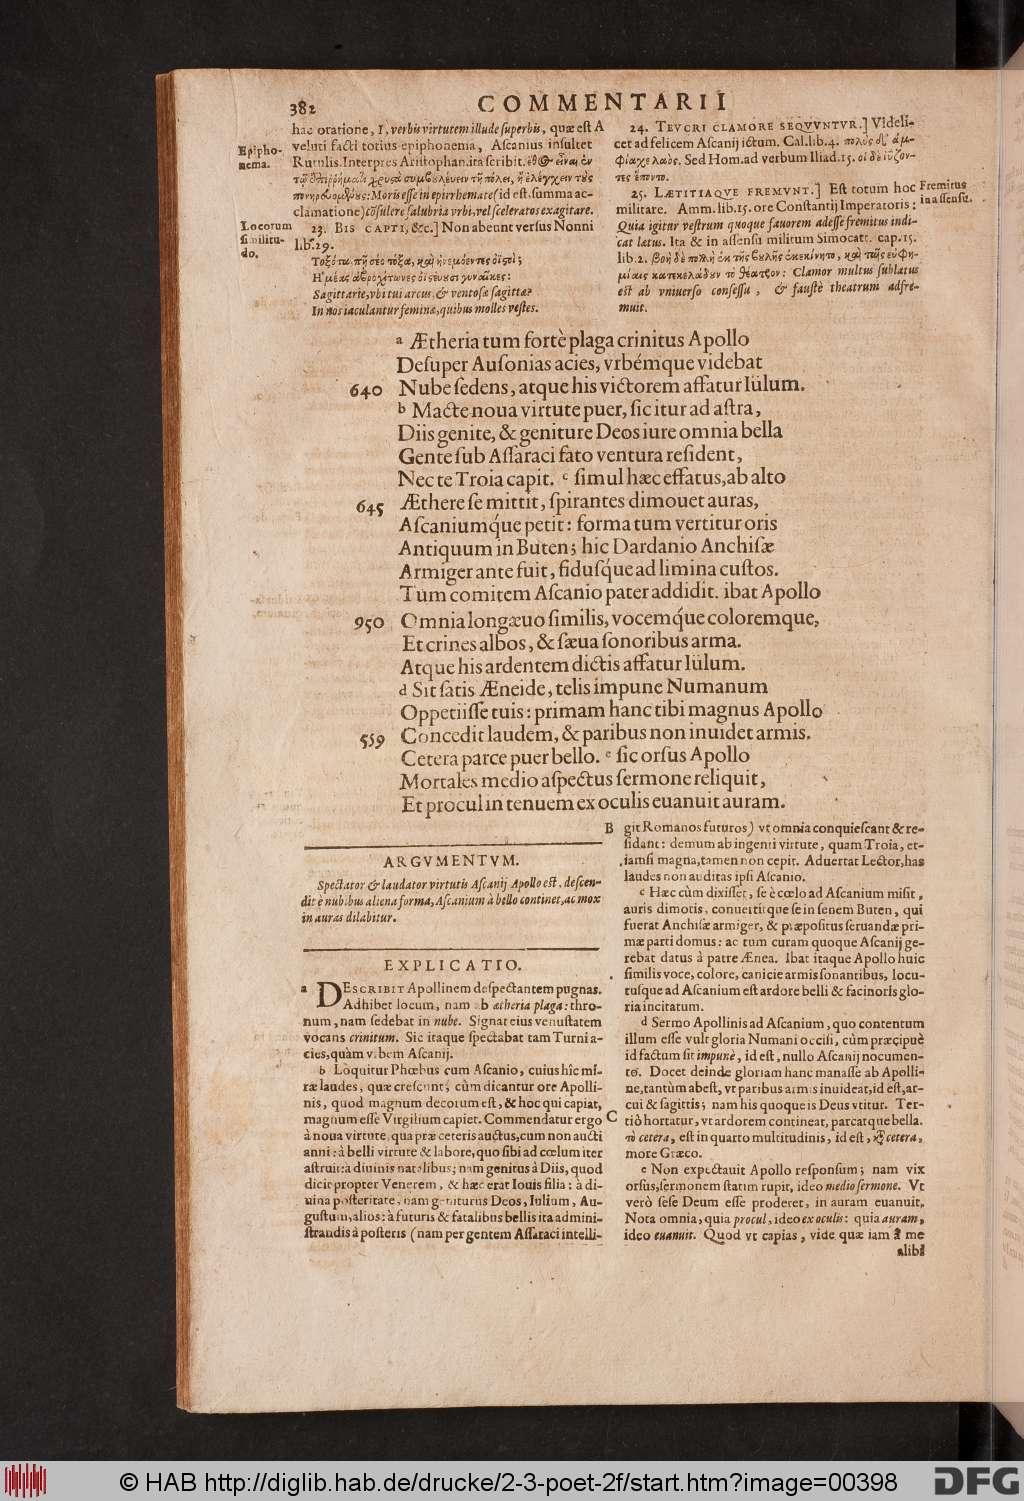 382
COMMENTARII
hac oratione, I, verbis virtutem illude superbis, quæ est A
veluti facti totius epiphonema, Ascanius insultet
Rutulis. Interpres Aristophan. ita scribit.
Epipho-
nema.
clamatione) cōsulere salubria vrbi, vel sceleratos exagitare.
23. BIS CAPTI, &c.] Non abeunt versus Nonni
lib. 29.
Locorum
similitu-
do.
Sagittarie, vbi tui arcus, & ventosæ sagittæ?
In nos iaculantur feminæ, quibus molles vestes.
24. TEVCRI CLAMORE SEQVVNTVR.] Videli-
cet ad felicem Ascanij ictum. Cal. lib. 4.
Sed Hom. ad verbum Iliad. 15.
25. LÆTITIAQVE FREMVNT.] Est totum hoc
militare. Amm. lib. 15. ore Constantij Imperatoris:
Quia igitur vestrum quoque fauorem adesse fremitus indi-
cat lætus. Ita & in assensu militum Simocatt. cap. 15.
lib. 2.
Clamor multus sublatus
est ab vniuerso consessu, & faustè theatrum adfre-
muit.
Fremitus
in assensu.
a Ætheria tum fortè plaga crinitus Apollo
Desuper Ausonias acies, vrbémque videbat
640 Nube sedens, atque his victorem affatur Iülum.
b Macte noua virtute puer, sic itur ad astra,
Diis genite, & geniture Deos iure omnia bella
Gente sub Assaraci fato ventura resident,
Nec te Troia capit. c simul hæc effatus, ab alto
645 Æthere se mittit, spirantes dimouet auras,
Ascaniumq́ue petit: forma tum vertitur oris
Antiquum in Buten; hic Dardanio Anchisæ
Armiger ante fuit, fidusq́ue ad limina custos.
Tum comitem Ascanio pater addidit. ibat Apollo
950 Omnia longæuo similis, vocemq́ue coloremque,
Et crines albos, & sæua sonoribus arma.
Atque his ardentem dictis affatur Iülum.
d Sit satis Æneide, telis impune Numanum
Oppetiisse tuis: primam hanc tibi magnus Apollo
559 Concedit laudem, & paribus non inuidet armis.
Cetera parce puer bello. e sic orsus Apollo
Mortales medio aspectus sermone reliquit,
Et procul in tenuem ex oculis euanuit auram.
ARGVMENTVM.
Spectator & laudator virtutis Ascanij Apollo est, descen-
dit è nubibus aliena forma, Ascanium à bello continet, ac mox
in auras dilabitur.
EXPLICATIO.
a DESCRIBIT Apollinem despectantem pugnas.
Adhibet locum, nam ab ætheria plaga: thro-
num, nam sedebat in nube. Signat eius venustatem
vocans crinitum. Sic itaque spectabat tam Turni a-
cies, quàm vrbem Ascanij.
b Loquitur Phœbus cum Ascanio, cuius hîc mi-
ræ laudes, quæ crescunt, cùm dicantur ore Apolli-
nis, quod magnum decorum est, & hoc qui capiat,
magnum esse Virgilium capiet. Commendatur ergo
à noua virtute, qua præ ceteris auctus, cum non aucti
anni: à belli virtute & labore, quo sibi ad cœlum iter
astruit: à diuinis natalibus; nam genitus à Diis, quod
dicit propter Venerem, & hæc erat Iouis filia: à di-
uina posteritate, nam geniturus Deos, Iulium, Au-
gustum, alios: à futuris & fatalibus bellis ita admini-
strandis à posteris (nam per gentem Assaraci intelli-
B git Romanos futuros) vt omnia conquiescant & re-
sidant: demum ab ingenti virtute, quam Troia, et-
iamsi magna, tamen non cepit. Aduertat Lector, has
laudes non auditas ipsi Ascanio.
c Hæc cùm dixisset, se è cœlo ad Ascanium misit,
auris dimotis, conuertitque se in senem Buten, qui
fuerat Anchisæ armiger, & præpositus seruandæ pri-
mæ parti domus: ac tum curam quoque Ascanij ge-
rebat datus à patre Ænea. Ibat itaque Apollo huic
similis voce, colore, canicie armis sonantibus, locu-
tusque ad Ascanium est ardore belli & facinoris glo-
ria incitatum.
d Sermo Apollinis ad Ascanium, quo contentum
illum esse vult gloria Numani occisi, cùm præcipuè
id factum sit impunè, id est, nullo Ascanij nocumen-
to. Docet deinde gloriam hanc manasse ab Apolli-
ne, tantùm abest, vt paribus armis inuideat, id est, ar-
cui & sagittis; nam his quoque is Deus vtitur. Ter-
C tiò hortatur, vt ardorem contineat, parcatque bella.
τὸ cetera, est in quarto multitudinis, id est, cetera,
more Græco.
e Non expectauit Apollo responsum; nam vix
orsus, sermonem statim rupit, ideo medio sermone. Vt
verò sese Deum esse proderet, in auram euanuit.
Nota omnia, quia procul, ideo ex oculis: quia auram,
ideo euanuit. Quod vt capias, vide quæ iam à me
alibi
© HAB http://diglib.hab.de/drucke/2-3-poet-2f/start.htm?image=00398
DFG